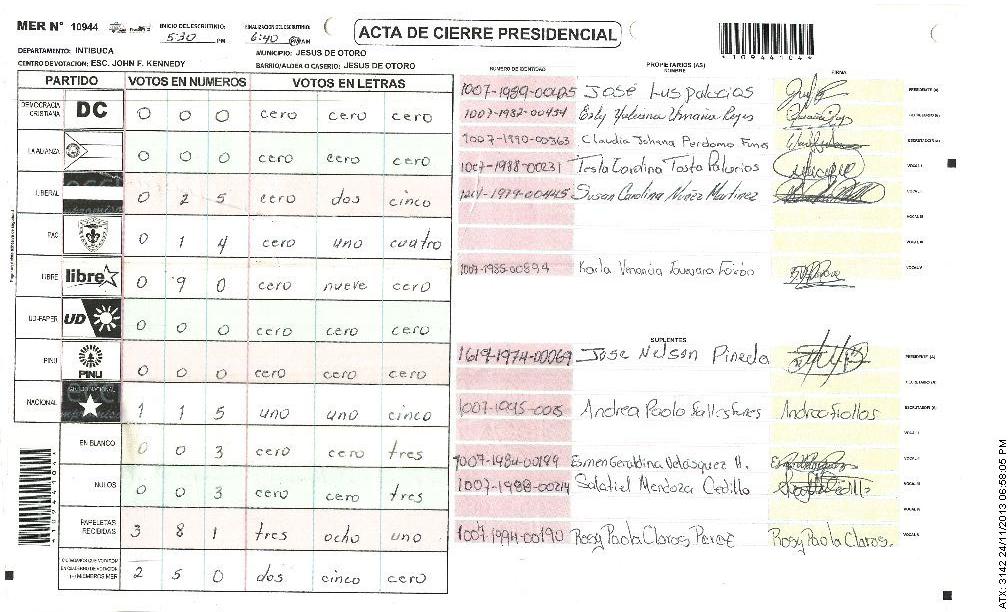 MER N° 10944
INICIO DEL ESCRUTINIO: 5:30 PM
FINALIZACION DEL ESCRUTINIO: 6:40 PM
ACTA DE CIERRE PRESIDENCIAL
*10944104*
DEPARTAMENTO: INTIBUCA
MUNICIPIO: JESUS DE OTORO
CENTRO DE VOTACION: ESC. JOHN F. KENNEDY
BARRIO/ALDEA O CASERIO: JESUS DE OTORO
PARTIDO VOTOS EN NUMEROS VOTOS EN LETRAS
DEMOCRACIA CRISTIANA DC 0 0 0 cero cero cero
LA ALIANZA 0 0 0 cero cero cero
LIBERAL 0 2 5 cero dos cinco
PAC 0 1 4 cero uno cuatro
LIBRE libre 0 9 0 cero nueve cero
UD-FAPER UD 0 0 0 cero cero cero
PINU PINU 0 0 0 cero cero cero
NACIONAL 1 1 5 uno uno cinco
EN BLANCO 0 0 3 cero cero tres
NULOS 0 0 3 cero cero tres
PAPELETAS RECIBIDAS 3 8 1 tres ocho uno
CIUDADANOS QUE VOTARON EN CUADERNO DE VOTACION (+) MIEMBROS MER 2 5 0 dos cinco cero
PROPIETARIOS (AS)
NUMERO DE IDENTIDAD NOMBRE FIRMA
José Luis palacios PRESIDENTE (A)
1007-1987-00454 Esly Yuliana Umaña Reyes
1007-1990-00363 Claudia Johana Perdomo Funes ESCRUTADOR (A)
1007-1988-00231 Tesla Carolina Tosta Palacios VOCAL I
Susan Carolina Nuñez Martinez
VOCAL III
VOCAL IV
1007-1985-00894 Karla VOCAL V
SUPLENTES
1619-1974-00069 Jose Nelson Pineda PRESIDENTE (A)
SECRETARIO (A)
Andrea Paola ESCRUTADOR (A)
VOCAL I
1007-1984-00199 Esmen Geraldina Velásquez H. VOCAL II
1007-1988-00214 Salatiel Mendoza Cedillo VOCAL III
VOCAL IV
1007-1994-00190 Rosy Paola Claros Perez Rosy Paola Claros. VOCAL V
*10944104*
ATX: 3142 24/11/2013 06:58:05 PM